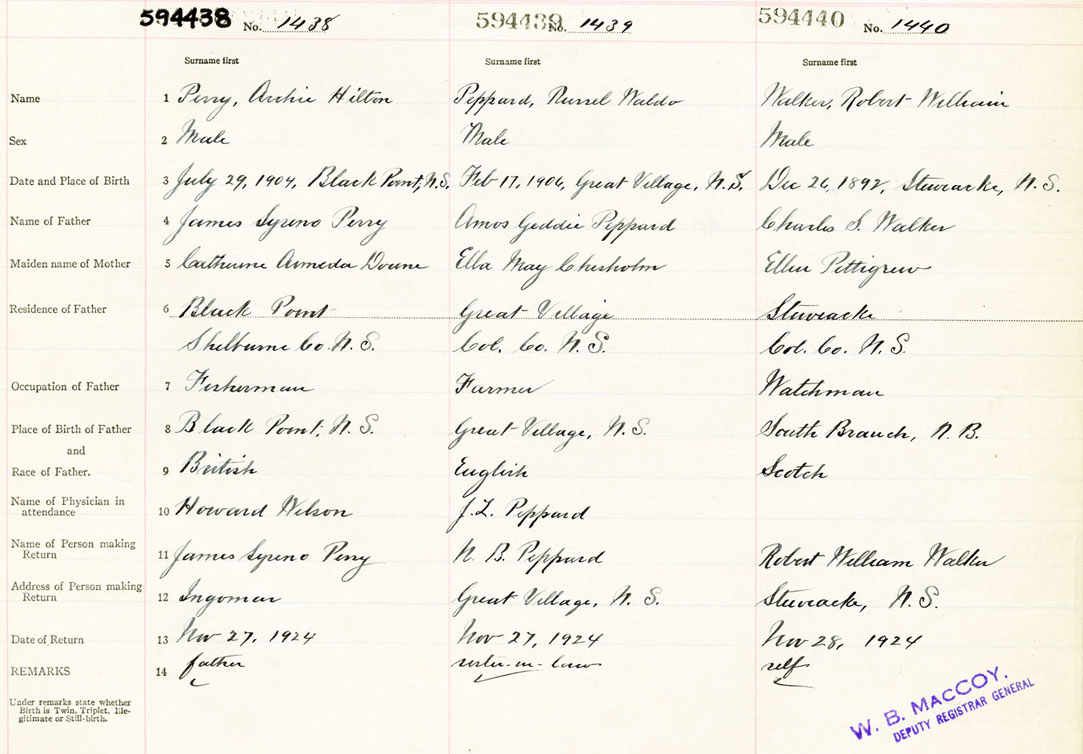 594438 No. 1438 594439 No. 1439 594440 No. 1440
Surname first Surname first Surname first
Name 1 Perry, Archie Hilton Peppard, Russel Waldo Walker, Robert William
Sex 2 Male Male Male
Date and Place of Birth 3 July 29, 1904, Black Point, N.S. Feb 17, 1906, Great Village, N.S. Dec 26, 1892, Stewiacke, N.S.
Name of Father 4 James Syreno Perry Amos Geddie Peppard Charles S. Walker
Maiden name of Mother 5 Catherine Armeda Doane Ella May Chisholm Ellen Pettigrew
Residence of Father 6 Black Point Great Village Stewiacke
Shelburne Co. N.S. Col. Co. N.S. Col. Co. N.S.
Occupation of Father 7 Fisherman Farmer Watchman
Place of Birth of Father 8 Black Point, N.S. Great Village, N.S. South Branch, N.B.
and
Race of Father. 9 British English Scotch
Name of Physician in
attendance 10 Howard Wilson J.L. Peppard
Name of Person making
Return 11 James Syreno Perry N. B. Peppard Robert William Walker
Address of Person making
Return 12 Ingomar Great Village, N.S. Stewiacke, N.S.
Date of Return 13 Nov 27, 1924 Nov 27, 1924 Nov 28, 1924
REMARKS 14 father sister-in-law self
Under remarks state whether
Birth is Twin, Triplet, Ille-
gitimate or Still-birth.
W. B. MACCOY.
DEPUTY REGISTRAR GENERAL